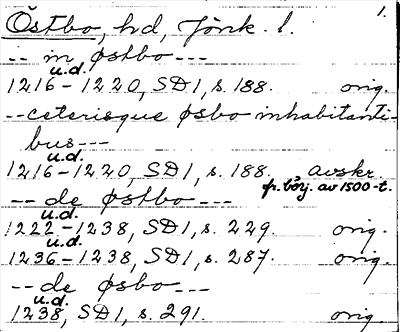 1.
Östbo, hd, Jönk. l.
-- in østbo ---
u.d.
1216-1220, SD1, s. 188. orig.
-- ceterisque øsbo inhabitanti-
bus ---
u.d.
1216-1220, SD1, s. 188. avskr.
fr. börj. av 1500-t.
-- de østbo ---
u.d.
1222-1238, SD1, s. 229. orig.
u.d.
1236-1238, SD1, s. 287. orig.
-- de øsbo ---
u.d.
1238, SD1, s. 291. orig.